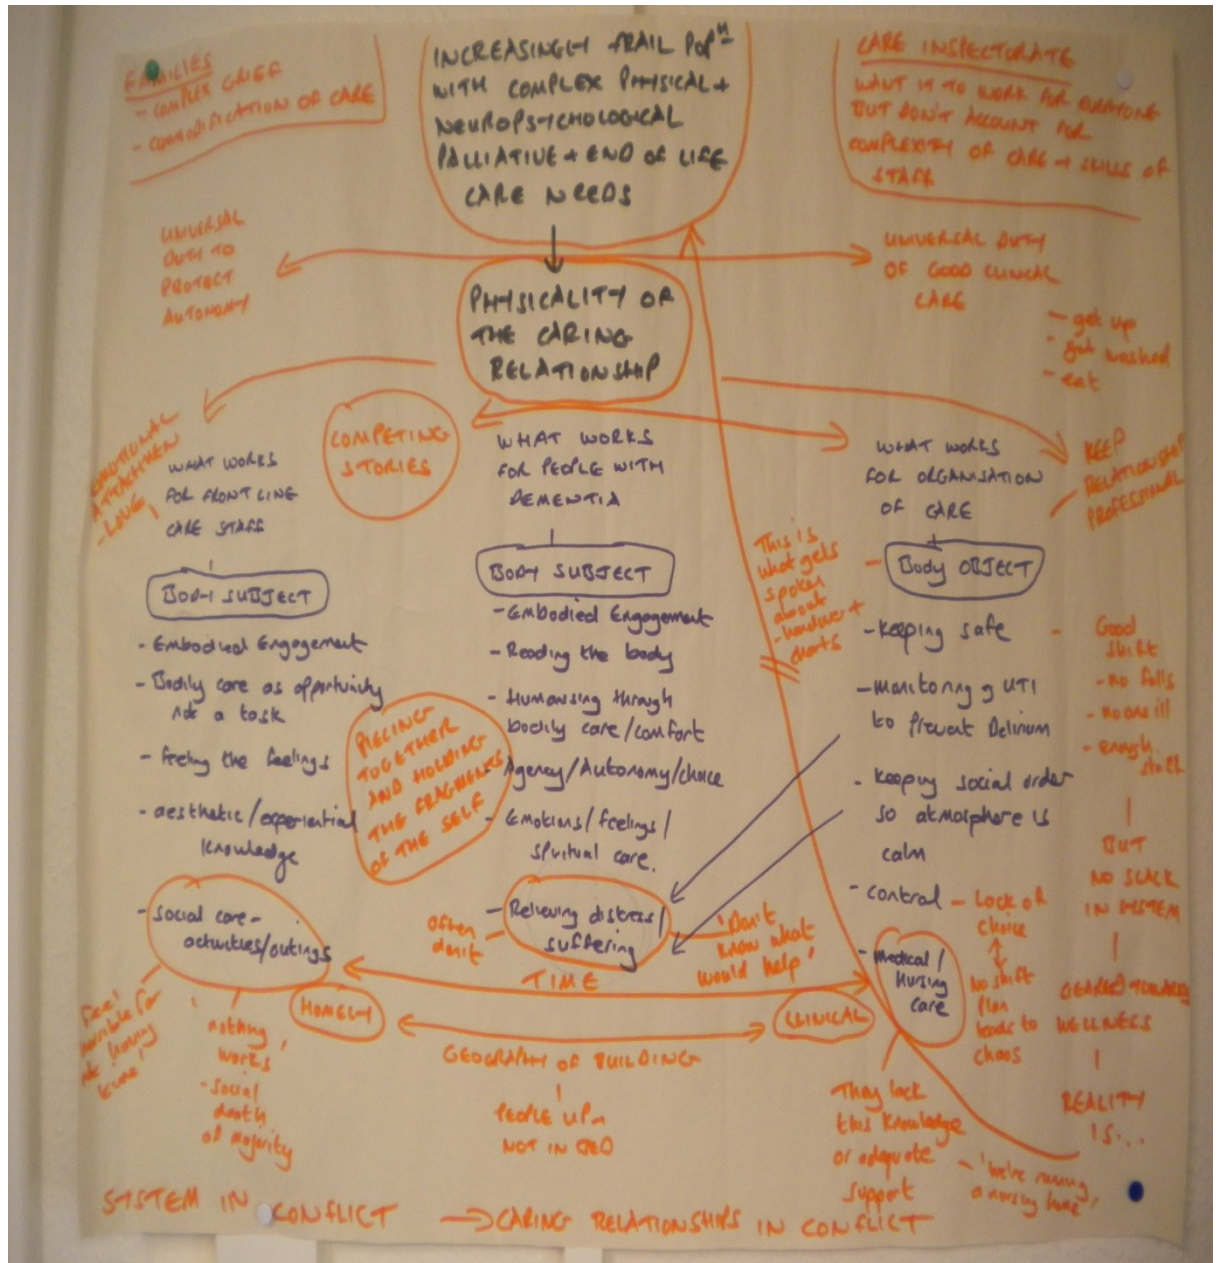 FAMILIES
- COMPLEX GRIEF
- COMMODIFICATION OF CARE
INCREASINGLY FRAIL POPN
WITH COMPLEX PHYSICAL +
NEUROPSYCHOLOGICAL
PALLIATIVE + END OF LIFE
CARE NEEDS
CARE INSPECTORATE
WANT IT TO WORK FOR EVERYONE
BUT DON'T ACCOUNT FOR
COMPLEXITY OF CARE + SKILLS OF
STAFF
UNIVERSAL
DUTY TO
PROTECT
AUTONOMY
UNIVERSAL DUTY
OF GOOD CLINICAL
CARE
- get up
- get washed
- eat
PHYSICALITY OF
THE CARING
RELATIONSHIP
EMOTIONAL
ATTACHMENT
- LOVE
COMPETING
STORIES
KEEP
RELATIONSHIP
PROFESSIONAL
WHAT WORKS
FOR FRONT LINE
CARE STAFF
BODY SUBJECT
- Embodied Engagement
- Bodily care as opportunity
not a task
- feeling the feelings
- aesthetic/experiential
knowledge
- Social care -
activities/outings
WHAT WORKS
FOR PEOPLE WITH
DEMENTIA
BODY SUBJECT
- Embodied Engagement
- Reading the body
- Humanising through
bodily care/comfort
- Agency/Autonomy/choice
- Emotions/feelings/
spiritual care.
- Relieving distress/
suffering
PIECING
TOGETHER
AND HOLDING
THE FRAGMENTS
OF THE SELF
WHAT WORKS
FOR ORGANISATION
OF CARE
Body OBJECT
- Keeping safe
- monitoring g UTI
to prevent Delirium
- Keeping social order
so atmosphere is
calm
- control
- medical/
Nursing
care
This is
what gets
spoken
about
- handover +
charts
- Good
shift
- no falls
- no one ill
- enough
staff
BUT
NO SLACK
IN SYSTEM
GEARED TOWARDS
WELLNESS
REALITY
IS...
- Lack of
choice
No shift
plan
leads to
chaos
often
don't
'Don't
know what
would help'
TIME
HOMELY
CLINICAL
GEOGRAPHY OF BUILDING
PEOPLE UP +
NOT IN BED
'feel
horrible for
not having
time'
'nothing
works'
- social
death
of majority
They lack
this knowledge
or adequate
support
- 'We're running
a nursing home'
SYSTEM IN CONFLICT → CARING RELATIONSHIPS IN CONFLICT